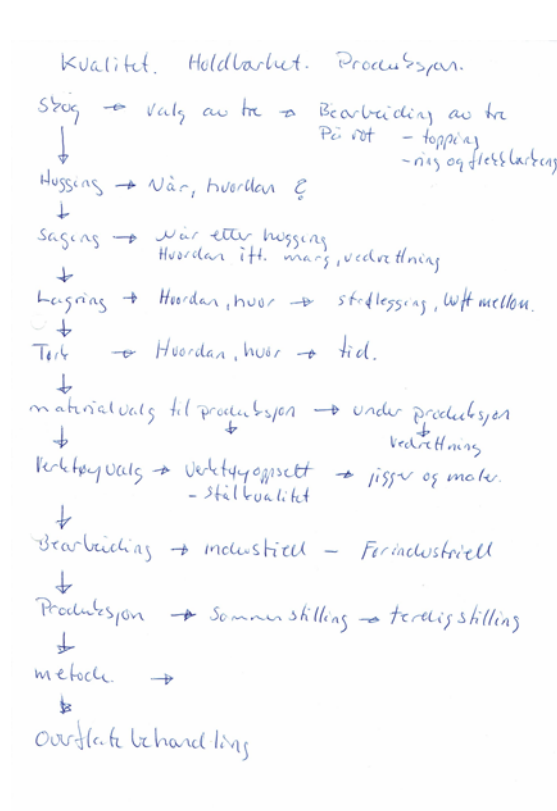 Kvalitet. Holdbarhet. Produksjon.
Skog → valg av tre → Bearbeiding av tre
På rot - topping
- ring og flekkbarking
Hugging → Når, hvordan &
Saging → Når etter hogging
Hvordan ift. marg, vedrettning
Lagring → Hvordan, hvor → strølegging, luft mellom.
Tørk → Hvordan, hvor → tid.
materialvalg til produksjon → under produksjon
vedrettning
Verktøyvalg → verktøyoppsett → jigger og maler.
- Stålkvalitet
Bearbeiding → industriell - Førindustriell
Produksjon → Sammenstilling → ferdigstilling
metode. →
Overflatebehandling